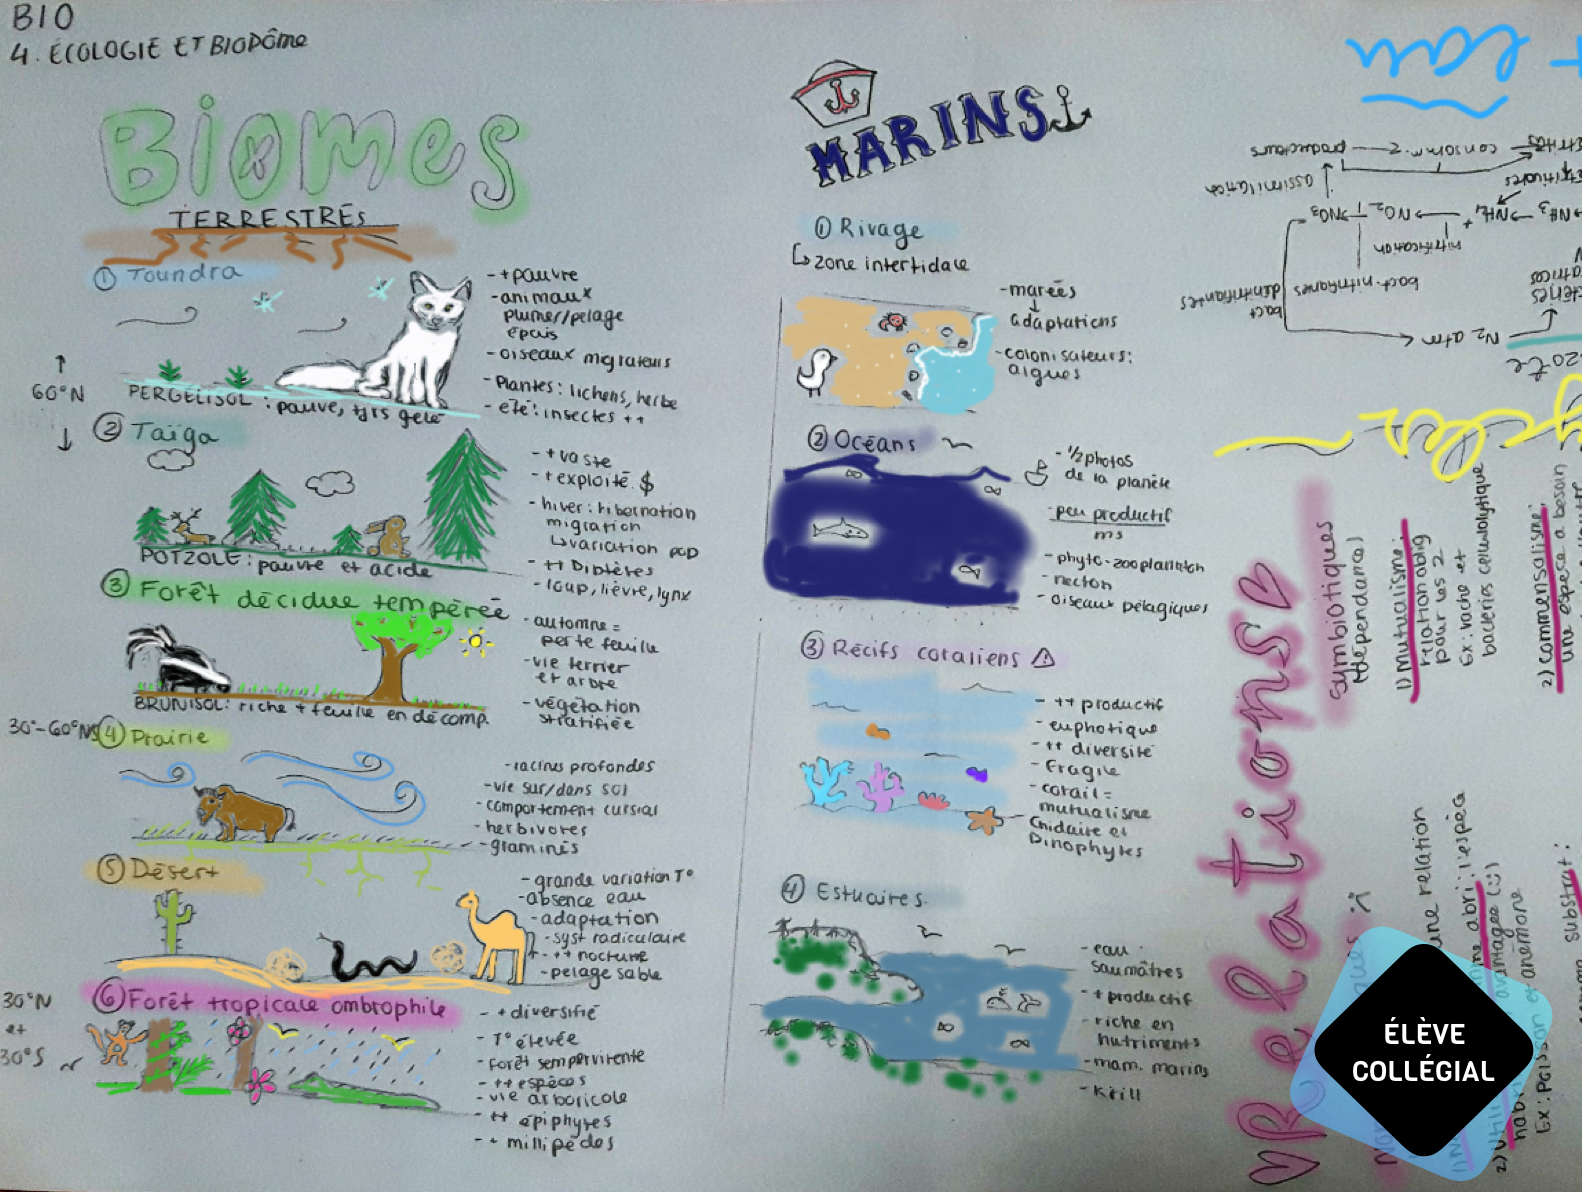 BIO
4. ÉCOLOGIE ET BIODÔME
Biomes
TERRESTRES
① Toundra
- + pauvre
- animaux
plumer//pelage
épais
- oiseaux migrateurs
- Plantes: lichens, herbe
- été: insectes ++
↑
60°N
↓
PERGÉLISOL : pauvre, tjrs gelé
② Taïga
- + vaste
- + exploité $
- hiver: hibernation
migration
↳variation pop
- ++ Diptères
- loup, lièvre, lynx
POTZOLE: pauvre et acide
③ Forêt décidue tempérée
- automne =
perte feuille
- vie terrier
et arbre
- végétation
stratifiée
BRUNISOL: riche + feuille en décomp.
30°-60°NS
④ Prairie
- racines profondes
- vie sur/dans sol
- comportement cursial
- herbivores
- graminés
⑤ Désert
- grande variation T°
- absence eau
- adaptation
- syst radiculaire
- ++ nocture
- pelage sable
30°N
et
30°S
⑥ Forêt tropicale ombrophile
- + diversifié
- T° élevée
- Forêt sempervirente
- ++ espèces
- vie arboricole
- ++ épiphytes
- + millipèdes
MARINS
① Rivage
↳ zone intertidale
- marées
↓
adaptations
- colonisateurs:
algues
② Océans
- 1/2 photos
de la planète
- peu productif
ms
- phyto-zooplankton
- necton
- oiseaux pélagiques
③ Récifs coraliens ⚠
- ++ productif
- euphotique
- ++ diversité
- Fragile
- corail =
mutualisme
Cnidaire et
Dinophytes
④ Estuaires
- eau
saumâtres
- + productif
- riche en
nutriments
- mam. marins
- krill
+ eau
producteurs
consomm. 2
assimilation
NO3
NO2
NH4+
NH3
nitrification
bact. nitrifiantes
bact
dénitrifiantes
N2 atm
Relations
symbiotiques
(dépendance)
1) Mutualisme:
relation oblig
pour les 2
Ex: vache et
bactéries cellulolytique
2) Commensalisme:
une espèce a besoin
une relation
abri: l'espèce
avantagée (:)
et anémone
substrat:
ÉLÈVE
COLLÉGIAL